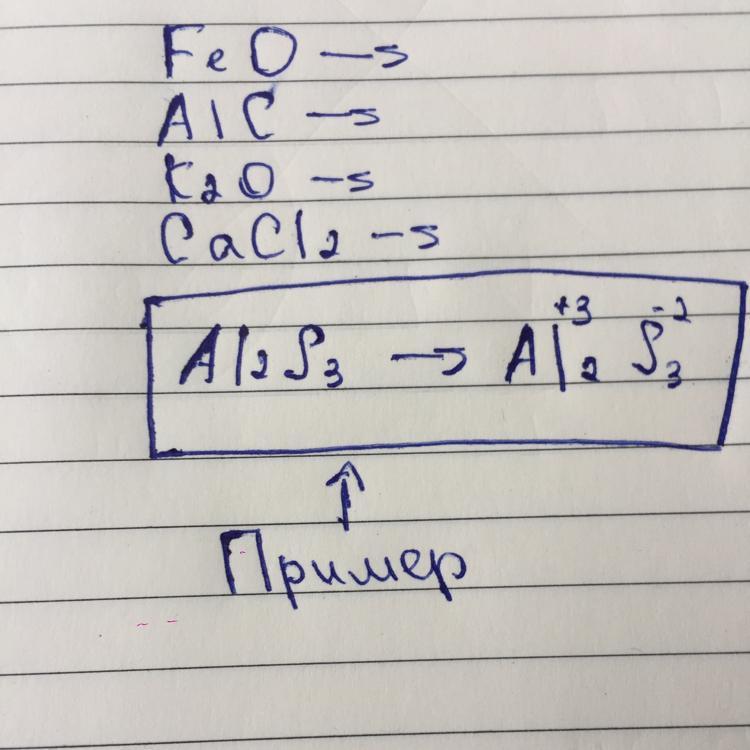 FeO →
AlC →
K₂O →
CaCl₂ →
Al₂S₃ → Al₂⁺³ S₃⁻²
Пример